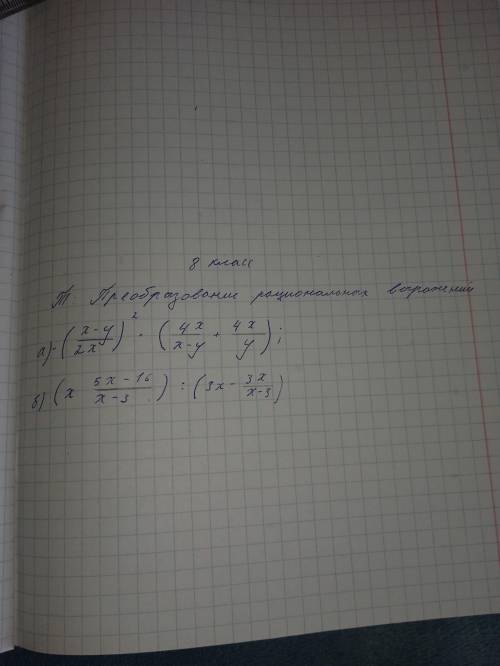 8 класс
Т. Преобразование рациональных выражений
а) -(x-y/2x)² · (4x/x-y + 4x/y);
б) (x 5x-16/x-3) : (3x - 3x/x-3)